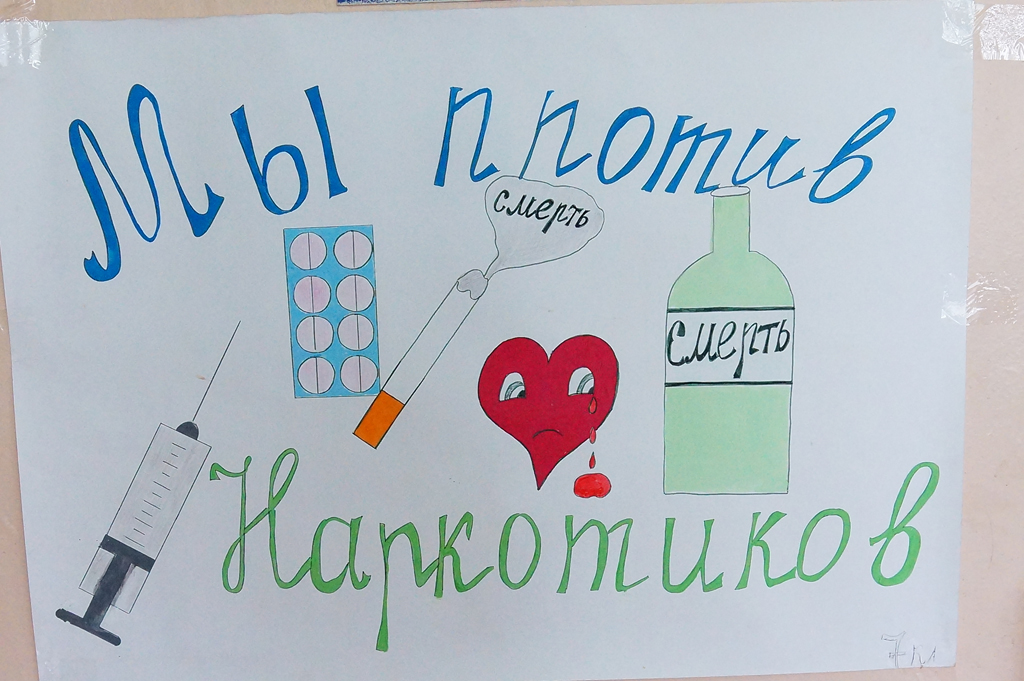 Мы против
смерть
смерть
Наркотиков